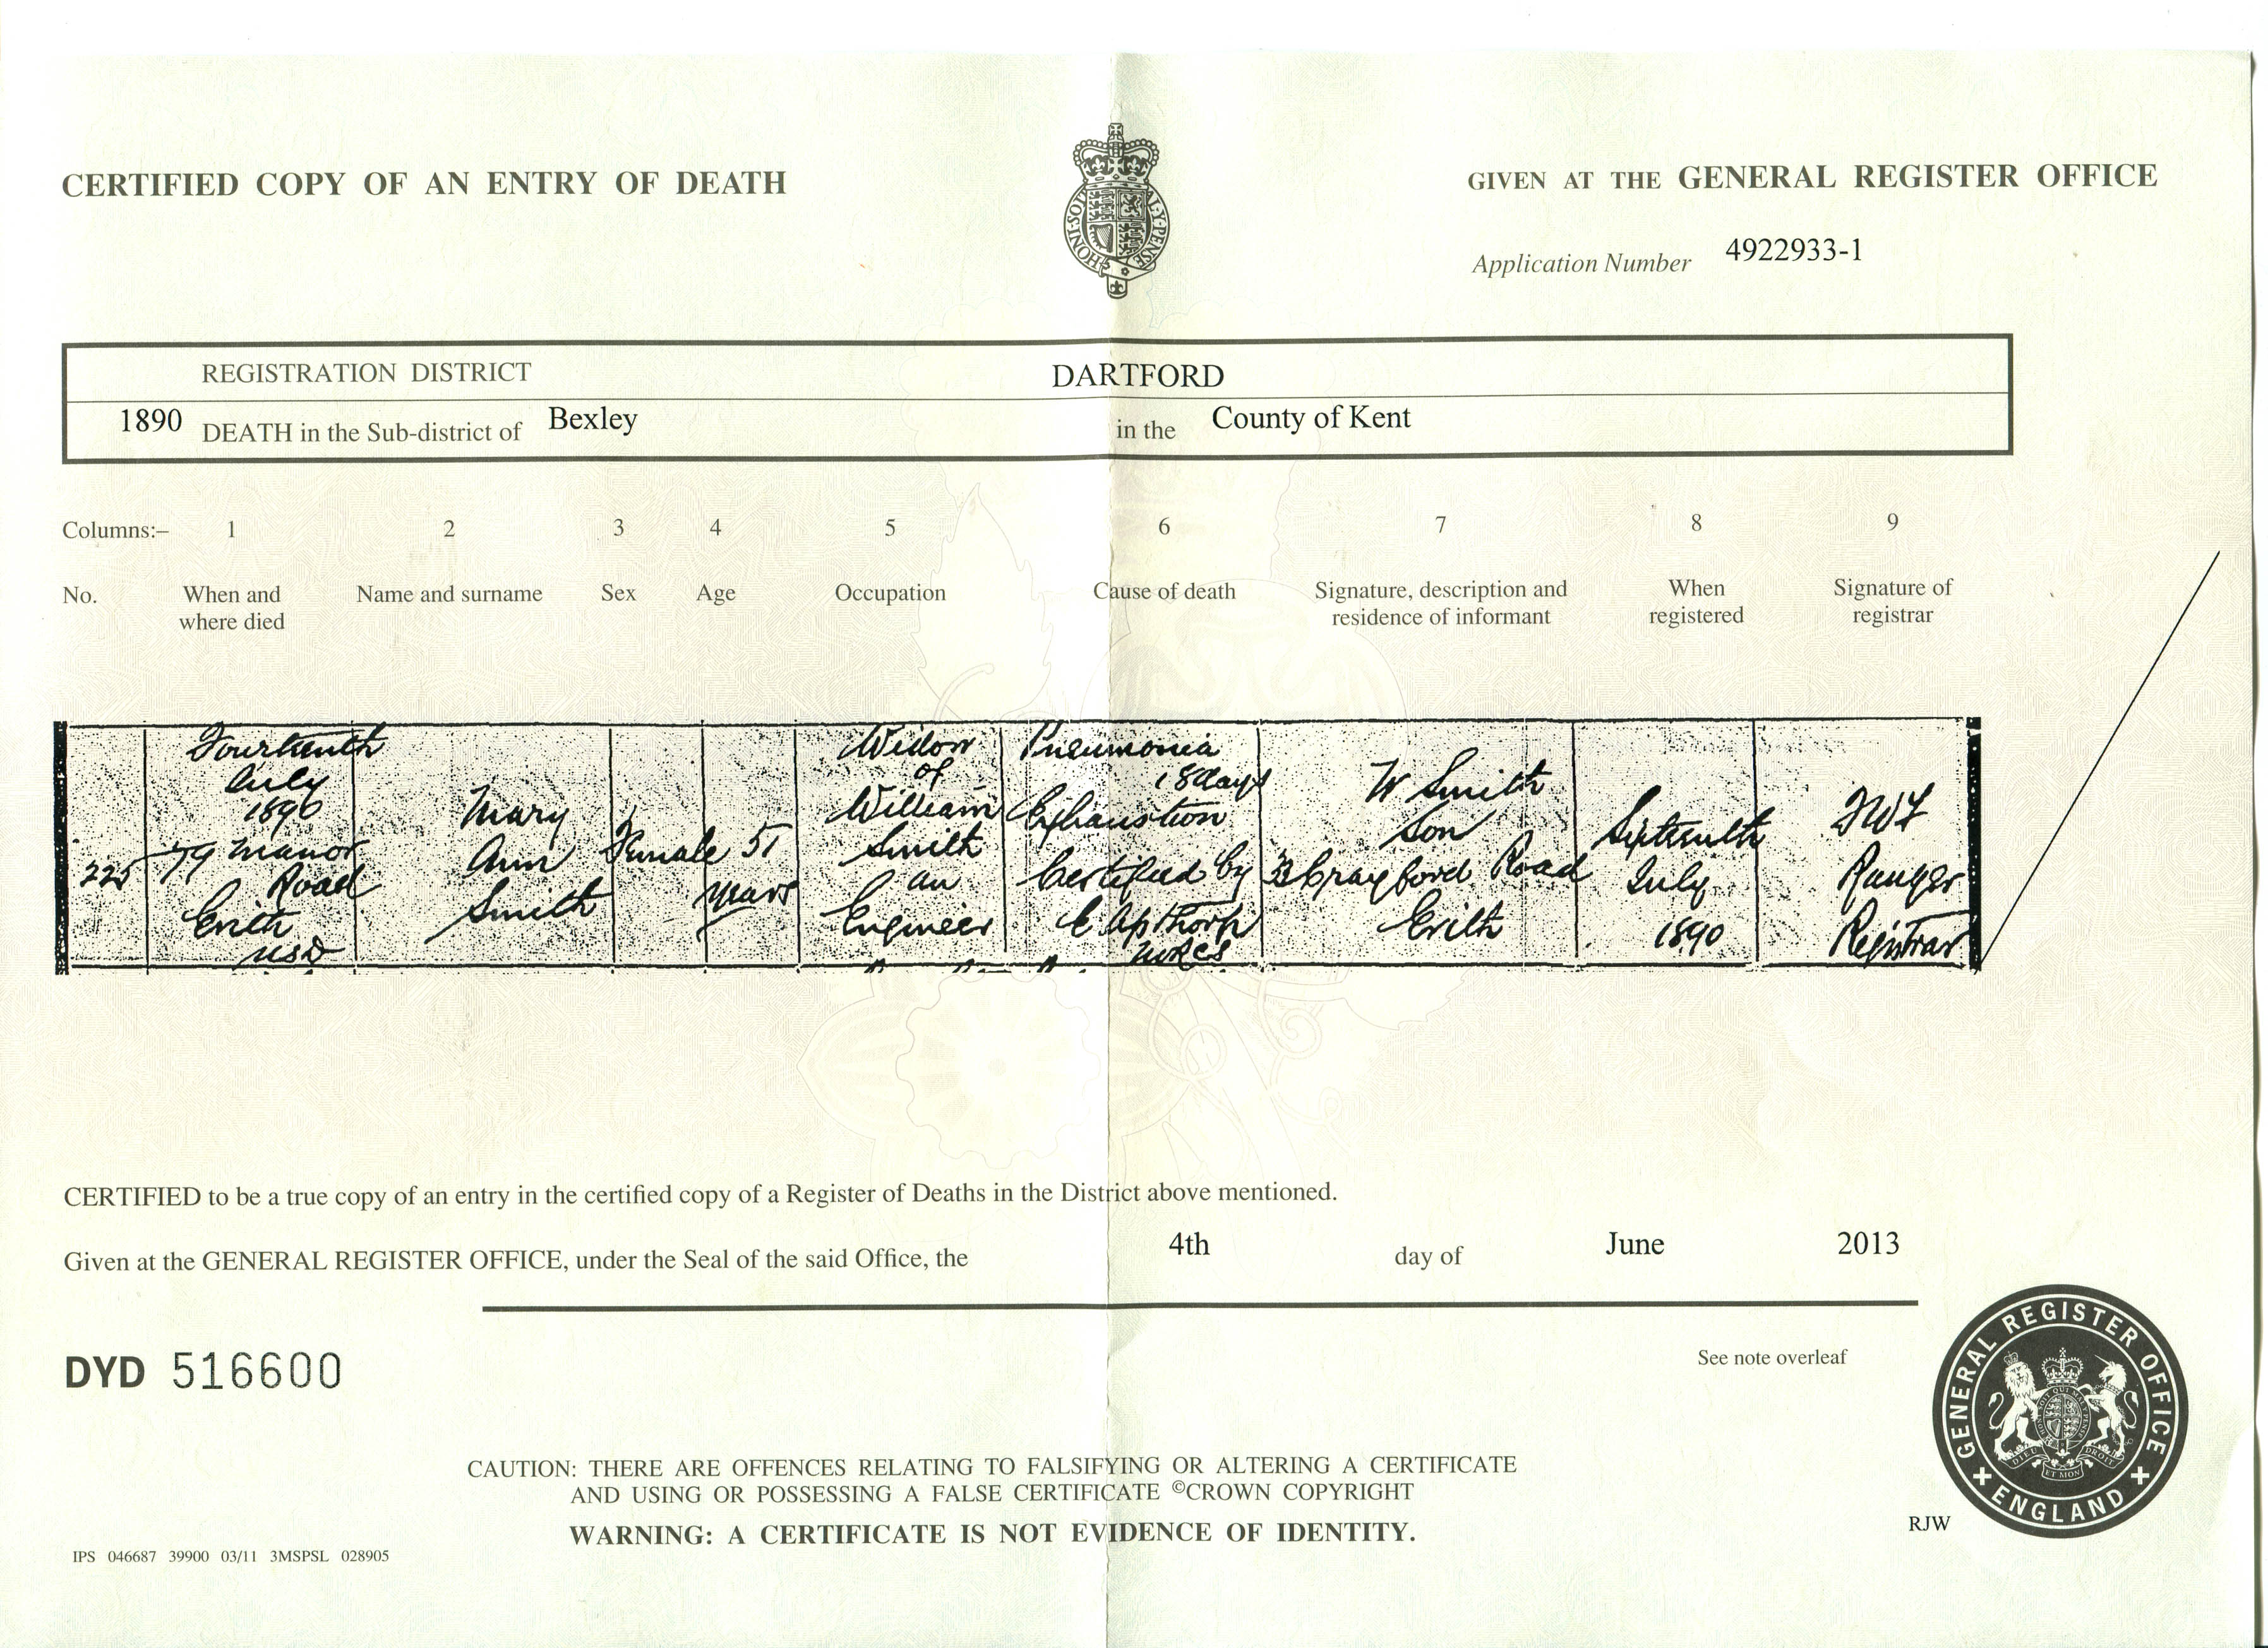 CERTIFIED COPY OF AN ENTRY OF DEATH
HONI·SOIT AL·Y·PENSE
GIVEN AT THE GENERAL REGISTER OFFICE
Application Number 4922933-1
REGISTRATION DISTRICT DARTFORD
1890 DEATH in the Sub-district of Bexley in the County of Kent
Columns:– 1 2 3 4 5 6 7 8 9
No. When and where died Name and surname Sex Age Occupation Cause of death Signature, description and residence of informant When registered Signature of registrar
225
Fourteenth
July
1890
79 Manor
Road
Erith
USD
Mary
Ann
Smith
Female
51
years
Widow
of
William
Smith
an
Engineer
Pneumonia
18 days
Exhaustion
Certified by
C Apthorp
MRCS
W Smith
Son
Crayford Road
Erith
Sixteenth
July
1890
Ranger
Registrar
CERTIFIED to be a true copy of an entry in the certified copy of a Register of Deaths in the District above mentioned.
Given at the GENERAL REGISTER OFFICE, under the Seal of the said Office, the 4th day of June 2013
DYD 516600
See note overleaf
GENERAL REGISTER OFFICE
ENGLAND
DIEU ET MON DROIT
CAUTION: THERE ARE OFFENCES RELATING TO FALSIFYING OR ALTERING A CERTIFICATE
AND USING OR POSSESSING A FALSE CERTIFICATE ©CROWN COPYRIGHT
WARNING: A CERTIFICATE IS NOT EVIDENCE OF IDENTITY.
RJW
IPS 046687 39900 03/11 3MSPSL 028905